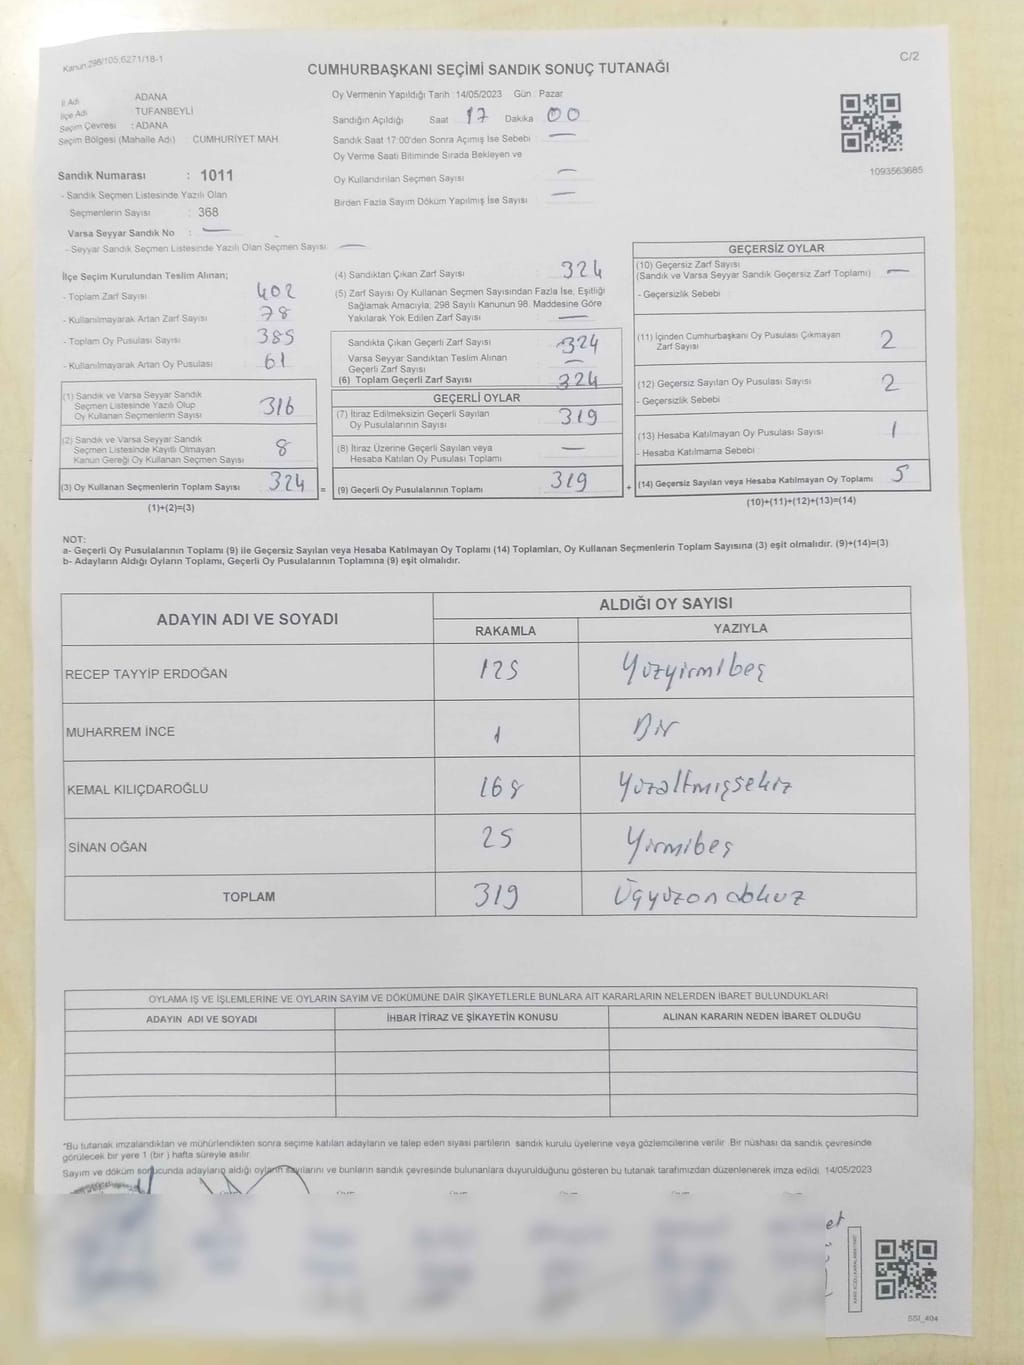 Kanun:298/105,6271/18-1
C/2
CUMHURBAŞKANI SEÇİMİ SANDIK SONUÇ TUTANAĞI
İl Adı ADANA
İlçe Adı TUFANBEYLİ
Seçim Çevresi : ADANA
Seçim Bölgesi (Mahalle Adı) CUMHURİYET MAH
Oy Vermenin Yapıldığı Tarih :14/05/2023 Gün : Pazar
Sandığın Açıldığı Saat 17 Dakika 00
Sandık Saat 17:00'den Sonra Açımış İse Sebebi —
Oy Verme Saati Bitiminde Sırada Bekleyen ve
Oy Kullandırılan Seçmen Sayısı —
Birden Fazla Sayım Döküm Yapılmış İse Sayısı —
1093563685
Sandık Numarası : 1011
- Sandık Seçmen Listesinde Yazılı Olan
Seçmenlerin Sayısı : 368
Varsa Seyyar Sandık No : —
- Seyyar Sandık Seçmen Listesinde Yazılı Olan Seçmen Sayısı: —
İlçe Seçim Kurulundan Teslim Alınan;
- Toplam Zarf Sayısı 402
- Kullanılmayarak Artan Zarf Sayısı 78
- Toplam Oy Pusulası Sayısı 385
- Kullanılmayarak Artan Oy Pusulası 61
(1) Sandık ve Varsa Seyyar Sandık
Seçmen Listesinde Yazılı Olup
Oy Kullanan Seçmenlerin Sayısı 316
(2) Sandık ve Varsa Seyyar Sandık
Seçmen Listesinde Kayıtlı Olmayan
Kanun Gereği Oy Kullanan Seçmen Sayısı 8
(3) Oy Kullanan Seçmenlerin Toplam Sayısı 324 =
(1)+(2)=(3)
(4) Sandıktan Çıkan Zarf Sayısı 324
(5) Zarf Sayısı Oy Kullanan Seçmen Sayısından Fazla İse, Eşitliği
Sağlamak Amacıyla; 298 Sayılı Kanunun 98. Maddesine Göre
Yakılarak Yok Edilen Zarf Sayısı —
Sandıkta Çıkan Geçerli Zarf Sayısı 324
Varsa Seyyar Sandıktan Teslim Alınan
Geçerli Zarf Sayısı —
(6) Toplam Geçerli Zarf Sayısı 324
GEÇERLİ OYLAR
(7) İtiraz Edilmeksizin Geçerli Sayılan
Oy Pusulalarının Sayısı 319
(8) İtiraz Üzerine Geçerli Sayılan veya
Hesaba Katılan Oy Pusulası Toplamı —
(9) Geçerli Oy Pusulalarının Toplamı 319 +
GEÇERSİZ OYLAR
(10) Geçersiz Zarf Sayısı
(Sandık ve Varsa Seyyar Sandık Geçersiz Zarf Toplamı) —
- Geçersizlik Sebebi :
(11) İçinden Cumhurbaşkanı Oy Pusulası Çıkmayan
Zarf Sayısı 2
(12) Geçersiz Sayılan Oy Pusulası Sayısı 2
- Geçersizlik Sebebi :
(13) Hesaba Katılmayan Oy Pusulası Sayısı 1
- Hesaba Katılmama Sebebi :
(14) Geçersiz Sayılan veya Hesaba Katılmayan Oy Toplamı 5
(10)+(11)+(12)+(13)=(14)
NOT:
a- Geçerli Oy Pusulalarının Toplamı (9) ile Geçersiz Sayılan veya Hesaba Katılmayan Oy Toplamı (14) Toplamları, Oy Kullanan Seçmenlerin Toplam Sayısına (3) eşit olmalıdır. (9)+(14)=(3)
b- Adayların Aldığı Oyların Toplamı, Geçerli Oy Pusulalarının Toplamına (9) eşit olmalıdır.
ADAYIN ADI VE SOYADI
ALDIĞI OY SAYISI
RAKAMLA YAZIYLA
RECEP TAYYİP ERDOĞAN 125 Yüzyirmibeş
MUHARREM İNCE 1 Bir
KEMAL KILIÇDAROĞLU 168 Yüzaltmışsekiz
SİNAN OĞAN 25 Yirmibeş
TOPLAM 319 Üçyüzondokuz
OYLAMA İŞ VE İŞLEMLERİNE VE OYLARIN SAYIM VE DÖKÜMÜNE DAİR ŞİKAYETLERLE BUNLARA AİT KARARLARIN NELERDEN İBARET BULUNDUKLARI
ADAYIN ADI VE SOYADI İHBAR İTİRAZ VE ŞİKAYETİN KONUSU ALINAN KARARIN NEDEN İBARET OLDUĞU
*Bu tutanak imzalandıktan ve mühürlendikten sonra seçime katılan adayların ve talep eden siyasi partilerin sandık kurulu üyelerine veya gözlemcilerine verilir. Bir nüshası da sandık çevresinde
görülecek bir yere 1 (bir ) hafta süreyle asılır.
Sayım ve döküm sonucunda adayların aldığı oyların sayılarını ve bunların sandık çevresinde bulunanlara duyurulduğunu gösteren bu tutanak tarafımızdan düzenlenerek imza edildi. 14/05/2023
SSI_404